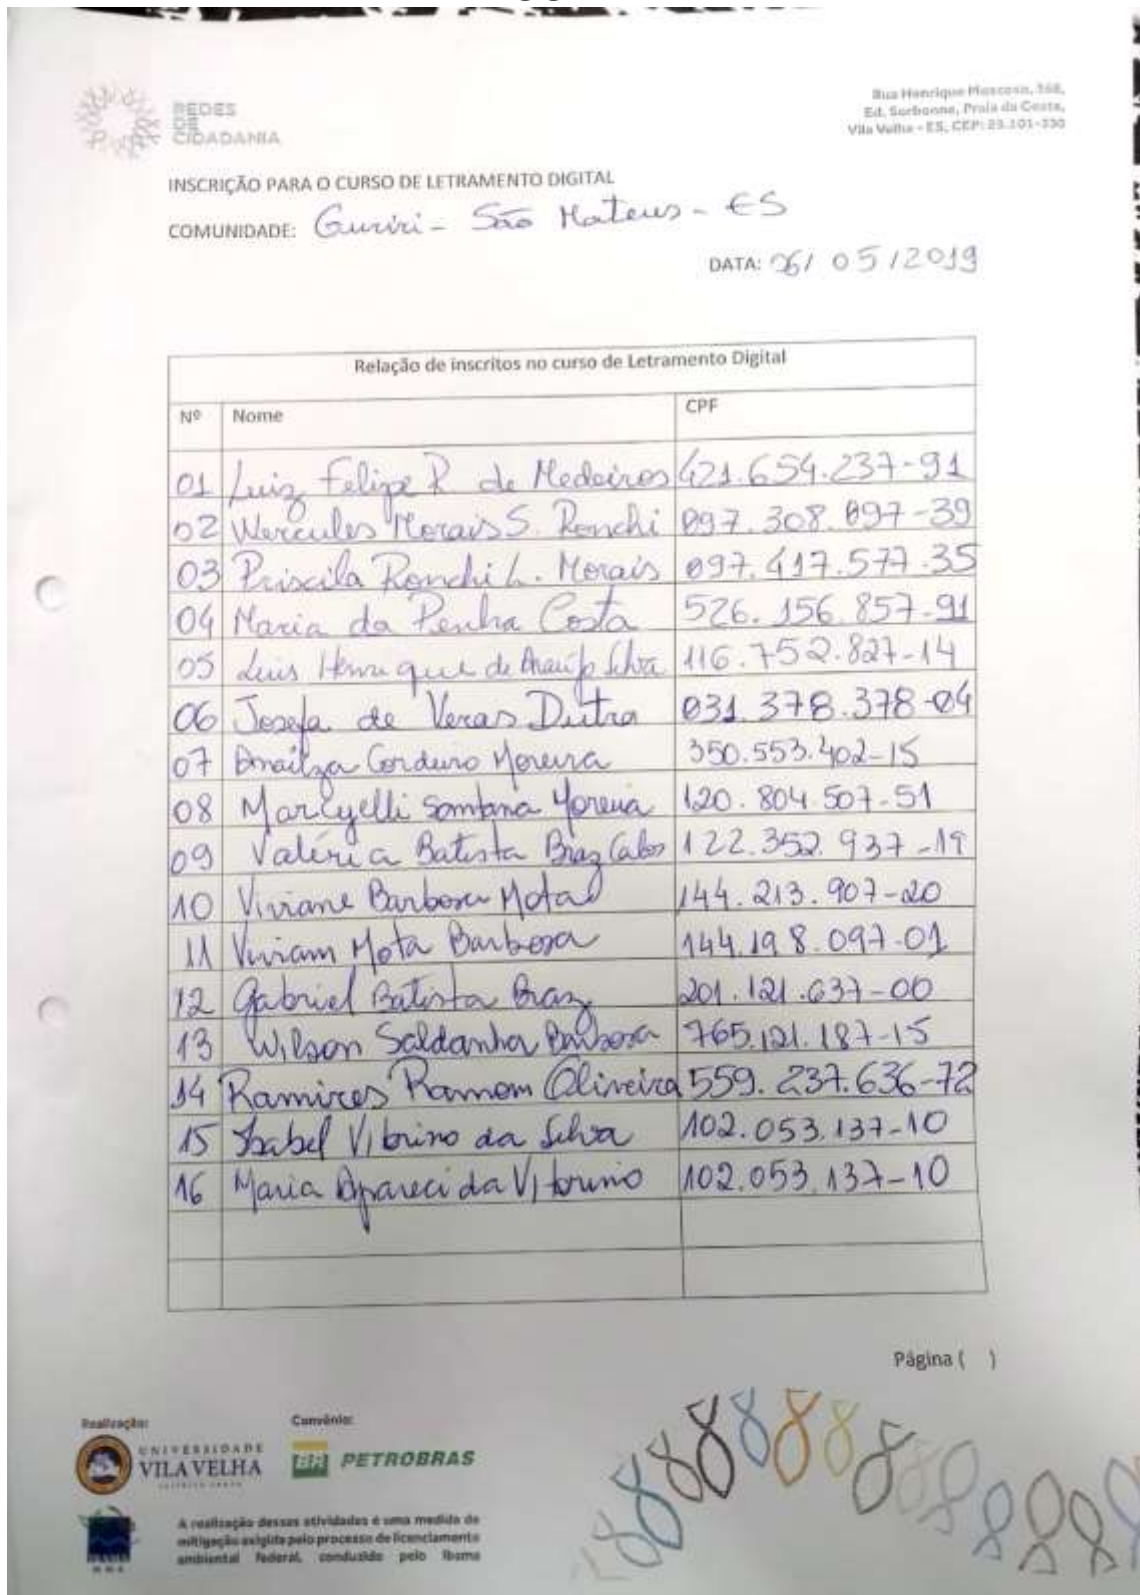 REDES
DE
CIDADANIA
Rua Henrique Moscoso, 368,
Ed. Sorbonne, Praia da Costa,
Vila Velha - ES, CEP: 29.101-330
INSCRIÇÃO PARA O CURSO DE LETRAMENTO DIGITAL
COMUNIDADE: Guriri - São Mateus - ES
DATA: 06/05/2019
Relação de inscritos no curso de Letramento Digital
Nº Nome CPF
01 Luiz Felipe R. de Medeiros 421.654.237-91
02 Wercules Morais S. Ronchi 097.308.097-39
03 Priscila Ronchi L. Morais 097.417.577.35
04 Maria da Penha Costa 526.156.857-91
05 Luis Henrique de Araújo Silva 116.752.827-14
06 Josefa de Veras Dutra 031.378.378-04
07 Cordeiro Moreira 350.553.402-15
08 Marcyelli Santana Moreira 120.804.507-51
09 Valéria Batista Braz 122.352.937-19
10 Viviane Barbosa Mota 144.213.907-20
11 Viviam Mota Barbosa 144.198.097-01
12 Gabriel Batista Braz 201.121.637-00
13 Wilson Saldanha Barbosa 765.121.187-15
14 Ramires Ramom Oliveira 559.237.636-72
15 Isabel Vitorino da Silva 102.053.137-10
16 Maria Aparecida Vitorino 102.053.137-10
Página ( )
Realização:
Convênio:
UNIVERSIDADE
VILA VELHA
BR PETROBRAS
A realização dessas atividades é uma medida de
mitigação exigida pelo processo de licenciamento
ambiental federal, conduzido pelo Ibama
IBAMA
MMA